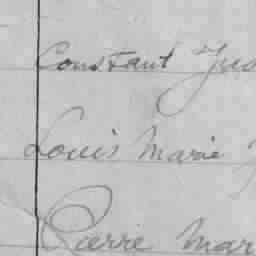 Constant
Louis Marie
Pierre Mar